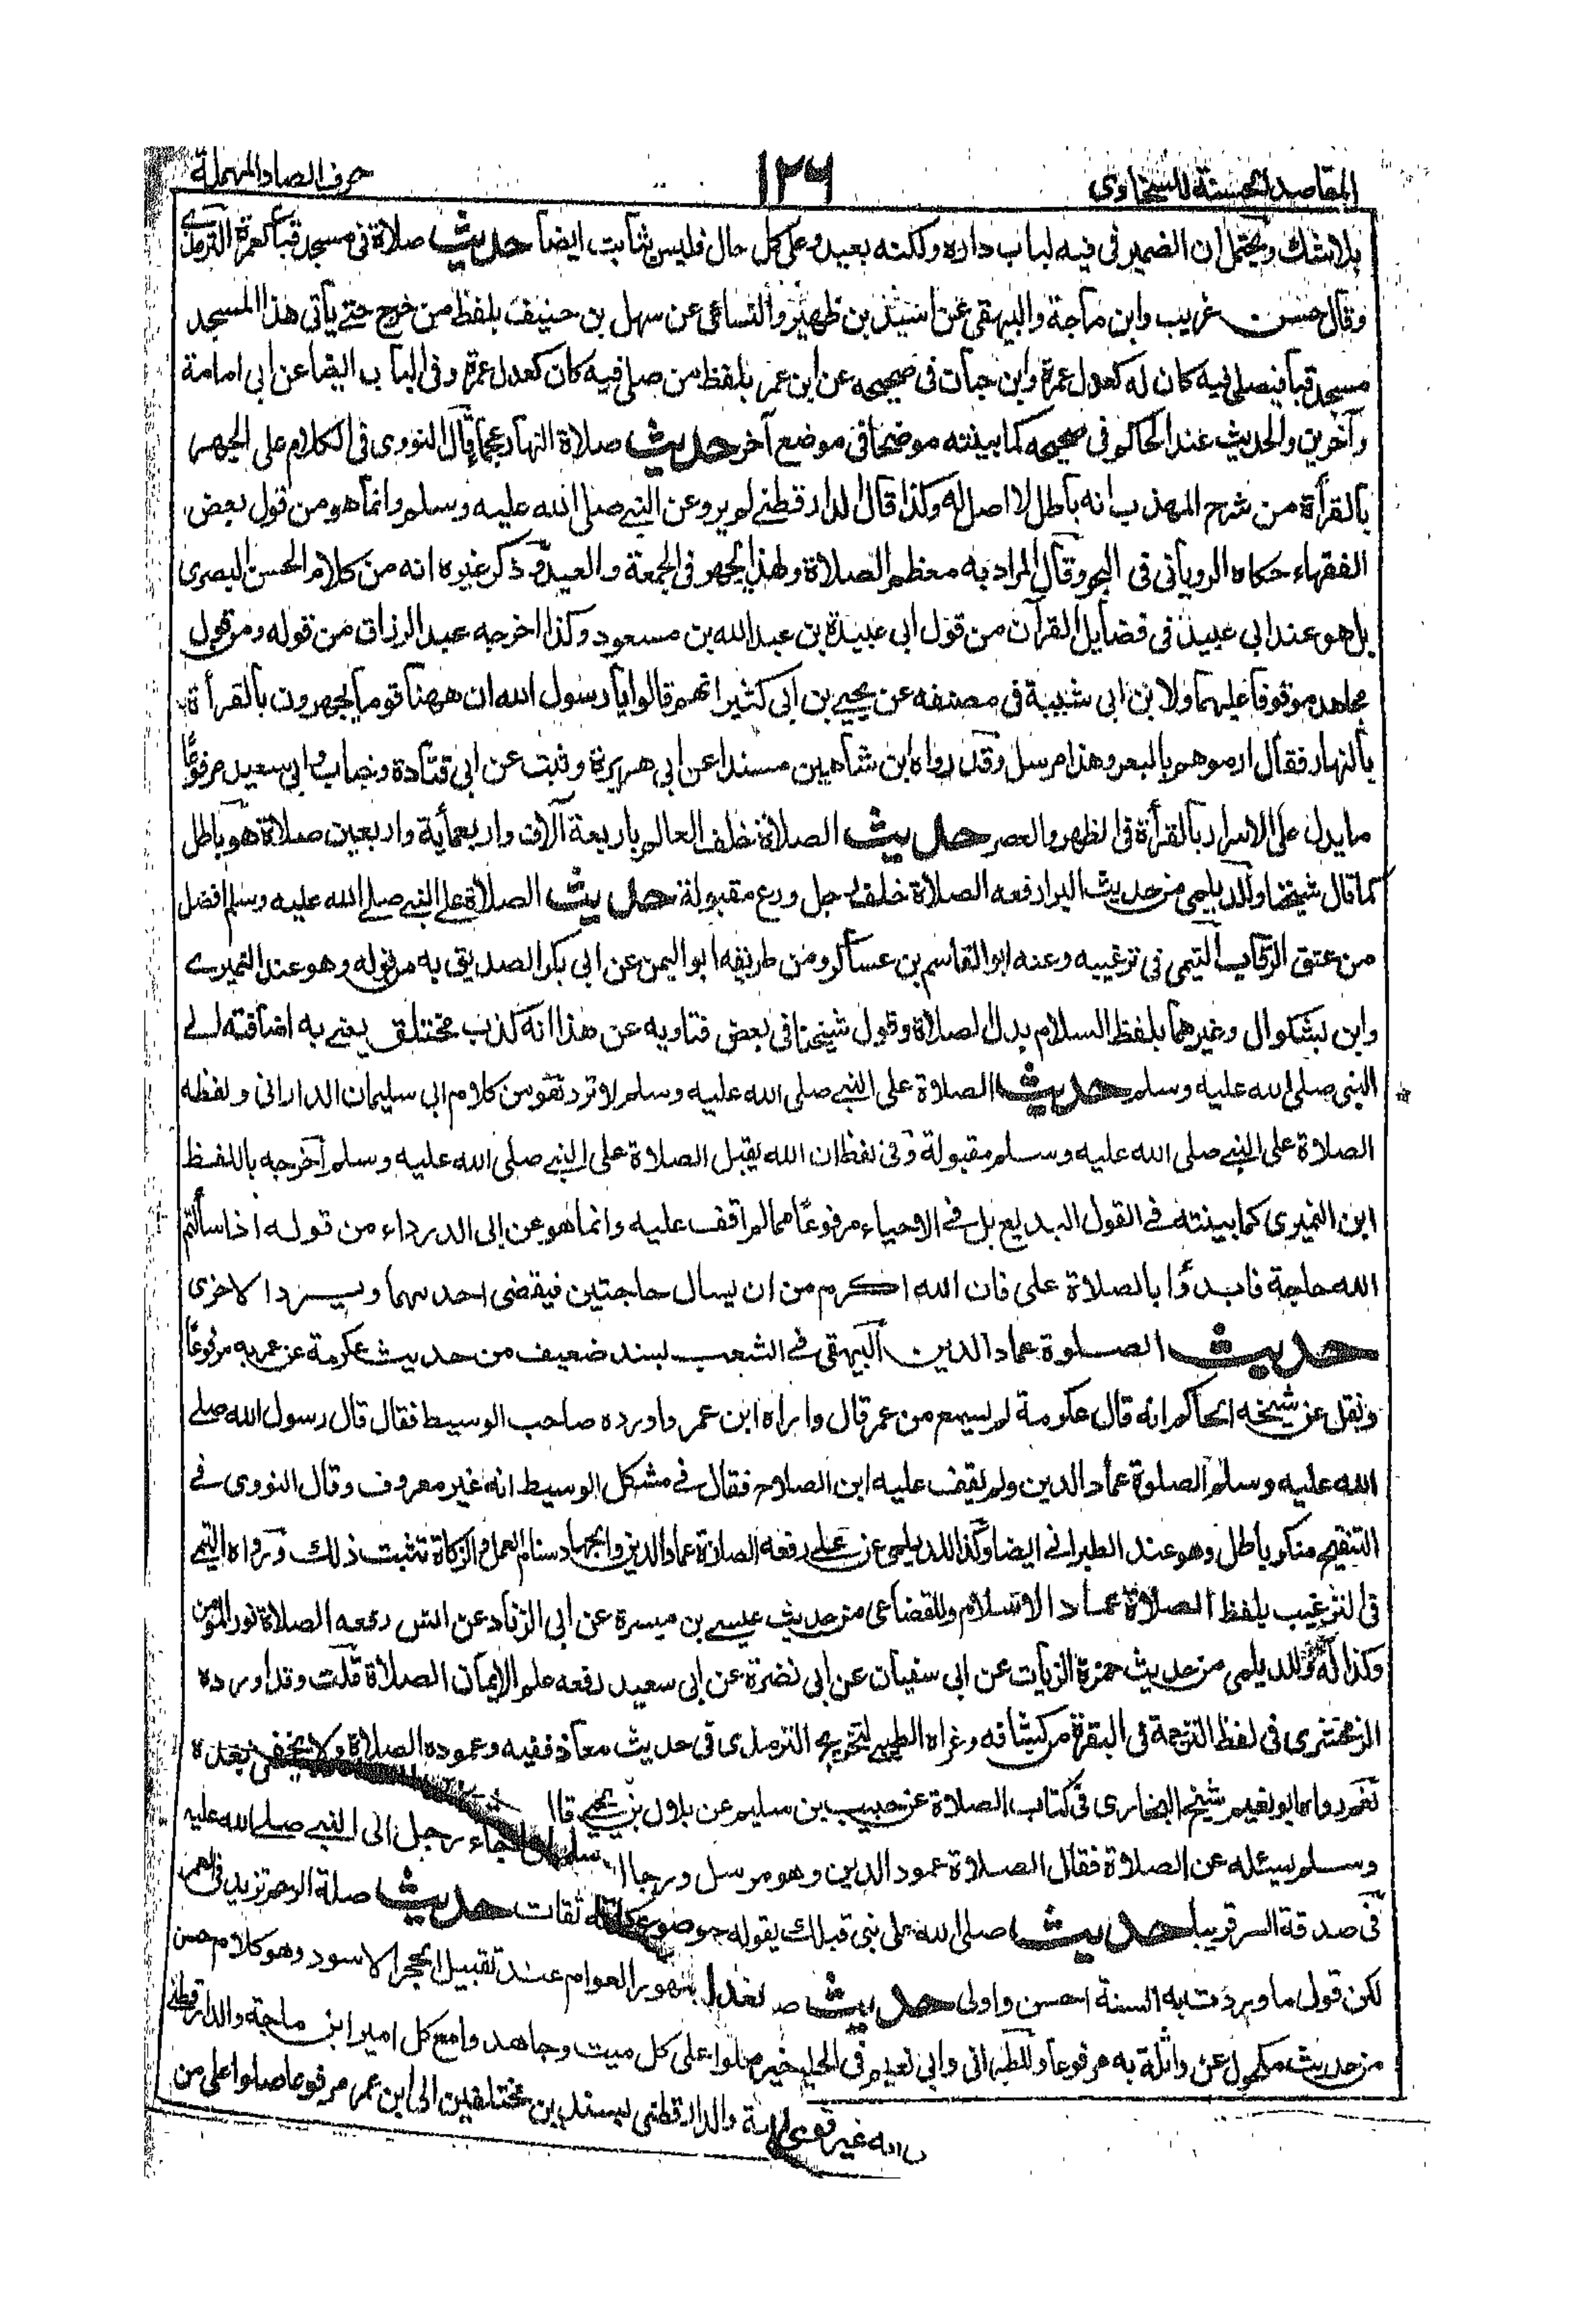 المقاصد الحسنة للسخاوى
١٢٦
حرف الصاد المهملة
بلا شك ويحتمل ان الضمير فى فيه لباب داره ولكنه بعيد وعلى كل حال فليس بثابت ايضا حديث صلاة فى مسجد قبا كعمرة الترمذى
وقال حسن غريب وابن ماجة والبيهقى عن اسيد بن ظهير والنسائى عن سهل بن حنيف بلفظ من خرج حتے يأتى هذا المسجد
مسجد قبا فيصلى فيه كان له كعدل عمرة وابن حبان فى صحيحه عن ابن عمر بلفظ من صلى فيه كان كعدل عمرة وفى الباب ايضا عن ابى امامة
وآخرين والحديث عند الحاكم فى صحيحه كما بينته موضحا فى موضع آخر حديث صلاة النهار عجما قال النووى فى الكلام على الجهر
بالقرأة من شرح المهذب انه باطل لا اصل له وكذا قال الدارقطنے لم يرو عن النبے صلى الله عليه وسلم وانما هو من قول بعض
الفقهاء حكاه الرويانى فى البحر وقال المراد به معظم الصلاة ولهذا يجهر فى الجمعة والعيد وذكر غيره انه من كلام الحسن البصرى
بل هو عند ابى عبيد فى فضايل القرآن من قول ابى عبيدة بن عبد الله بن مسعود وكذا اخرجه عبد الرزاق من قوله ومن قول
مجاهد موقوفا عليهما ولابن ابى شيبة فى مصنفه عن يحيے بن ابى كثير انهم قالوا يا رسول الله ان ههنا قوما يجهرون بالقرأة
بالنهار فقال ارموهم بالبعر وهذا مرسل وقد رواه ابن شاهين مسندا عن ابى هريرة وثبت عن ابى قتادة وخباب وابى سعيد مرفوعًا
ما يدل على الاسرار بالقرأة فى الظهر والعصر حديث الصلاة خلف العالم باربعة آلاف واربعمأية واربعين صلاة هو باطل
كما قال شيخنا وللديلمى من حديث البرا رفعه الصلاة خلف رجل ورع مقبولة حديث الصلاة على النبے صلے الله عليه وسلم افضل
من عتق الرقاب التيمى فى ترغيبه وعنه ابو القاسم بن عساكر ومن طريقه ابو اليمن عن ابى بكر الصديق به من قوله وهو عند النميرے
وابن بشكوال وغيرهما بلفظ السلام بدل الصلاة وقول شيخنا فى بعض فتاويه عن هذا انه كذب مختلق يعنے به اضافته لے
النبى صلى الله عليه وسلم حديث الصلاة على النبے صلى الله عليه وسلم لا ترد هو من كلام ابى سليمان الدارانى ولفظه
الصلاة على النبے صلى الله عليه وسلم مقبولة وفى لفظ ان الله يقبل الصلاة على النبے صلى الله عليه وسلم اخرجه باللفظ
ابن النميرى كما بينته فے القول البديع بل فے الاحياء مرفوعًا مما لم اقف عليه وانما هو عن ابى الدرداء من قوله اذا سألتم
الله حاجة فابدؤا بالصلاة على فان الله اكرم من ان يسال حاجتين فيقضى احدهما ويرد الاخرى
حديث الصلوة عماد الدين البيهقى فے الشعب بسند ضعيف من حديث عكرمة عن عمر به مرفوعًا
ونقل عن شيخه الحاكم انه قال عكرمة لم يسمع من عمر قال واراه ابن عمر واورده صاحب الوسيط فقال قال رسول الله صلے
الله عليه وسلم الصلوة عماد الدين ولم يقف عليه ابن الصلاح فقال فے مشكل الوسيط انه غير معروف وقال النووى فے
التنقيح منكر باطل وهو عند الطبرانے ايضا وكذا للديلمى عن على رفعه الصلاة عماد الدين والجهاد سنام العمل والزكاة تثبت ذلك ورواه التيمے
فى الترغيب بلفظ الصلاة عماد الاسلام وللقضاعى من حديث عيسے بن ميسرة عن ابى الزناد عن انس رفعه الصلاة نور المؤمن
وكذا له وللديلمى من حديث حمزة الزيات عن ابى سفيان عن ابى نضرة عن ابى سعيد رفعه علم الايمان الصلاة قلت وقد اورده
الزمخشرى فى لفظ الترجمة فى البقرة من كشافه وغراه الطيبے لتخريج الترمذى فى حديث معاذ ففيه وعموده الصلاة ولا يخفى بعده
نعم رواه ابو نعيم شيخ البخارى فى كتاب الصلاة عن حبيب بن سليم عن بلال بن يحيے قال جاء رجل الى النبے صلے الله عليه
وسلم يسئله عن الصلاة فقال الصلاة عمود الدين وهو مرسل ورجاله ثقات حديث صلة الرحم تزيد فى العمر
فى صدقة السر قريبا حديث صلى الله على نبى قبلك يقوله جمهور العوام عند تقبيل الحجر الاسود وهو كلام حسن
لكن قول ما وردت به السنة احسن واولى حديث صلوا على كل ميت وجاهد وامع كل امير ابن ماجة والدارقطنى
من حديث مكحول عن واثلة به مرفوعا وللطبرانى وابى نعيم فى الحلية والدارقطنى بسندين مختلفين الى ابن عمر مرفوعا صلوا على من